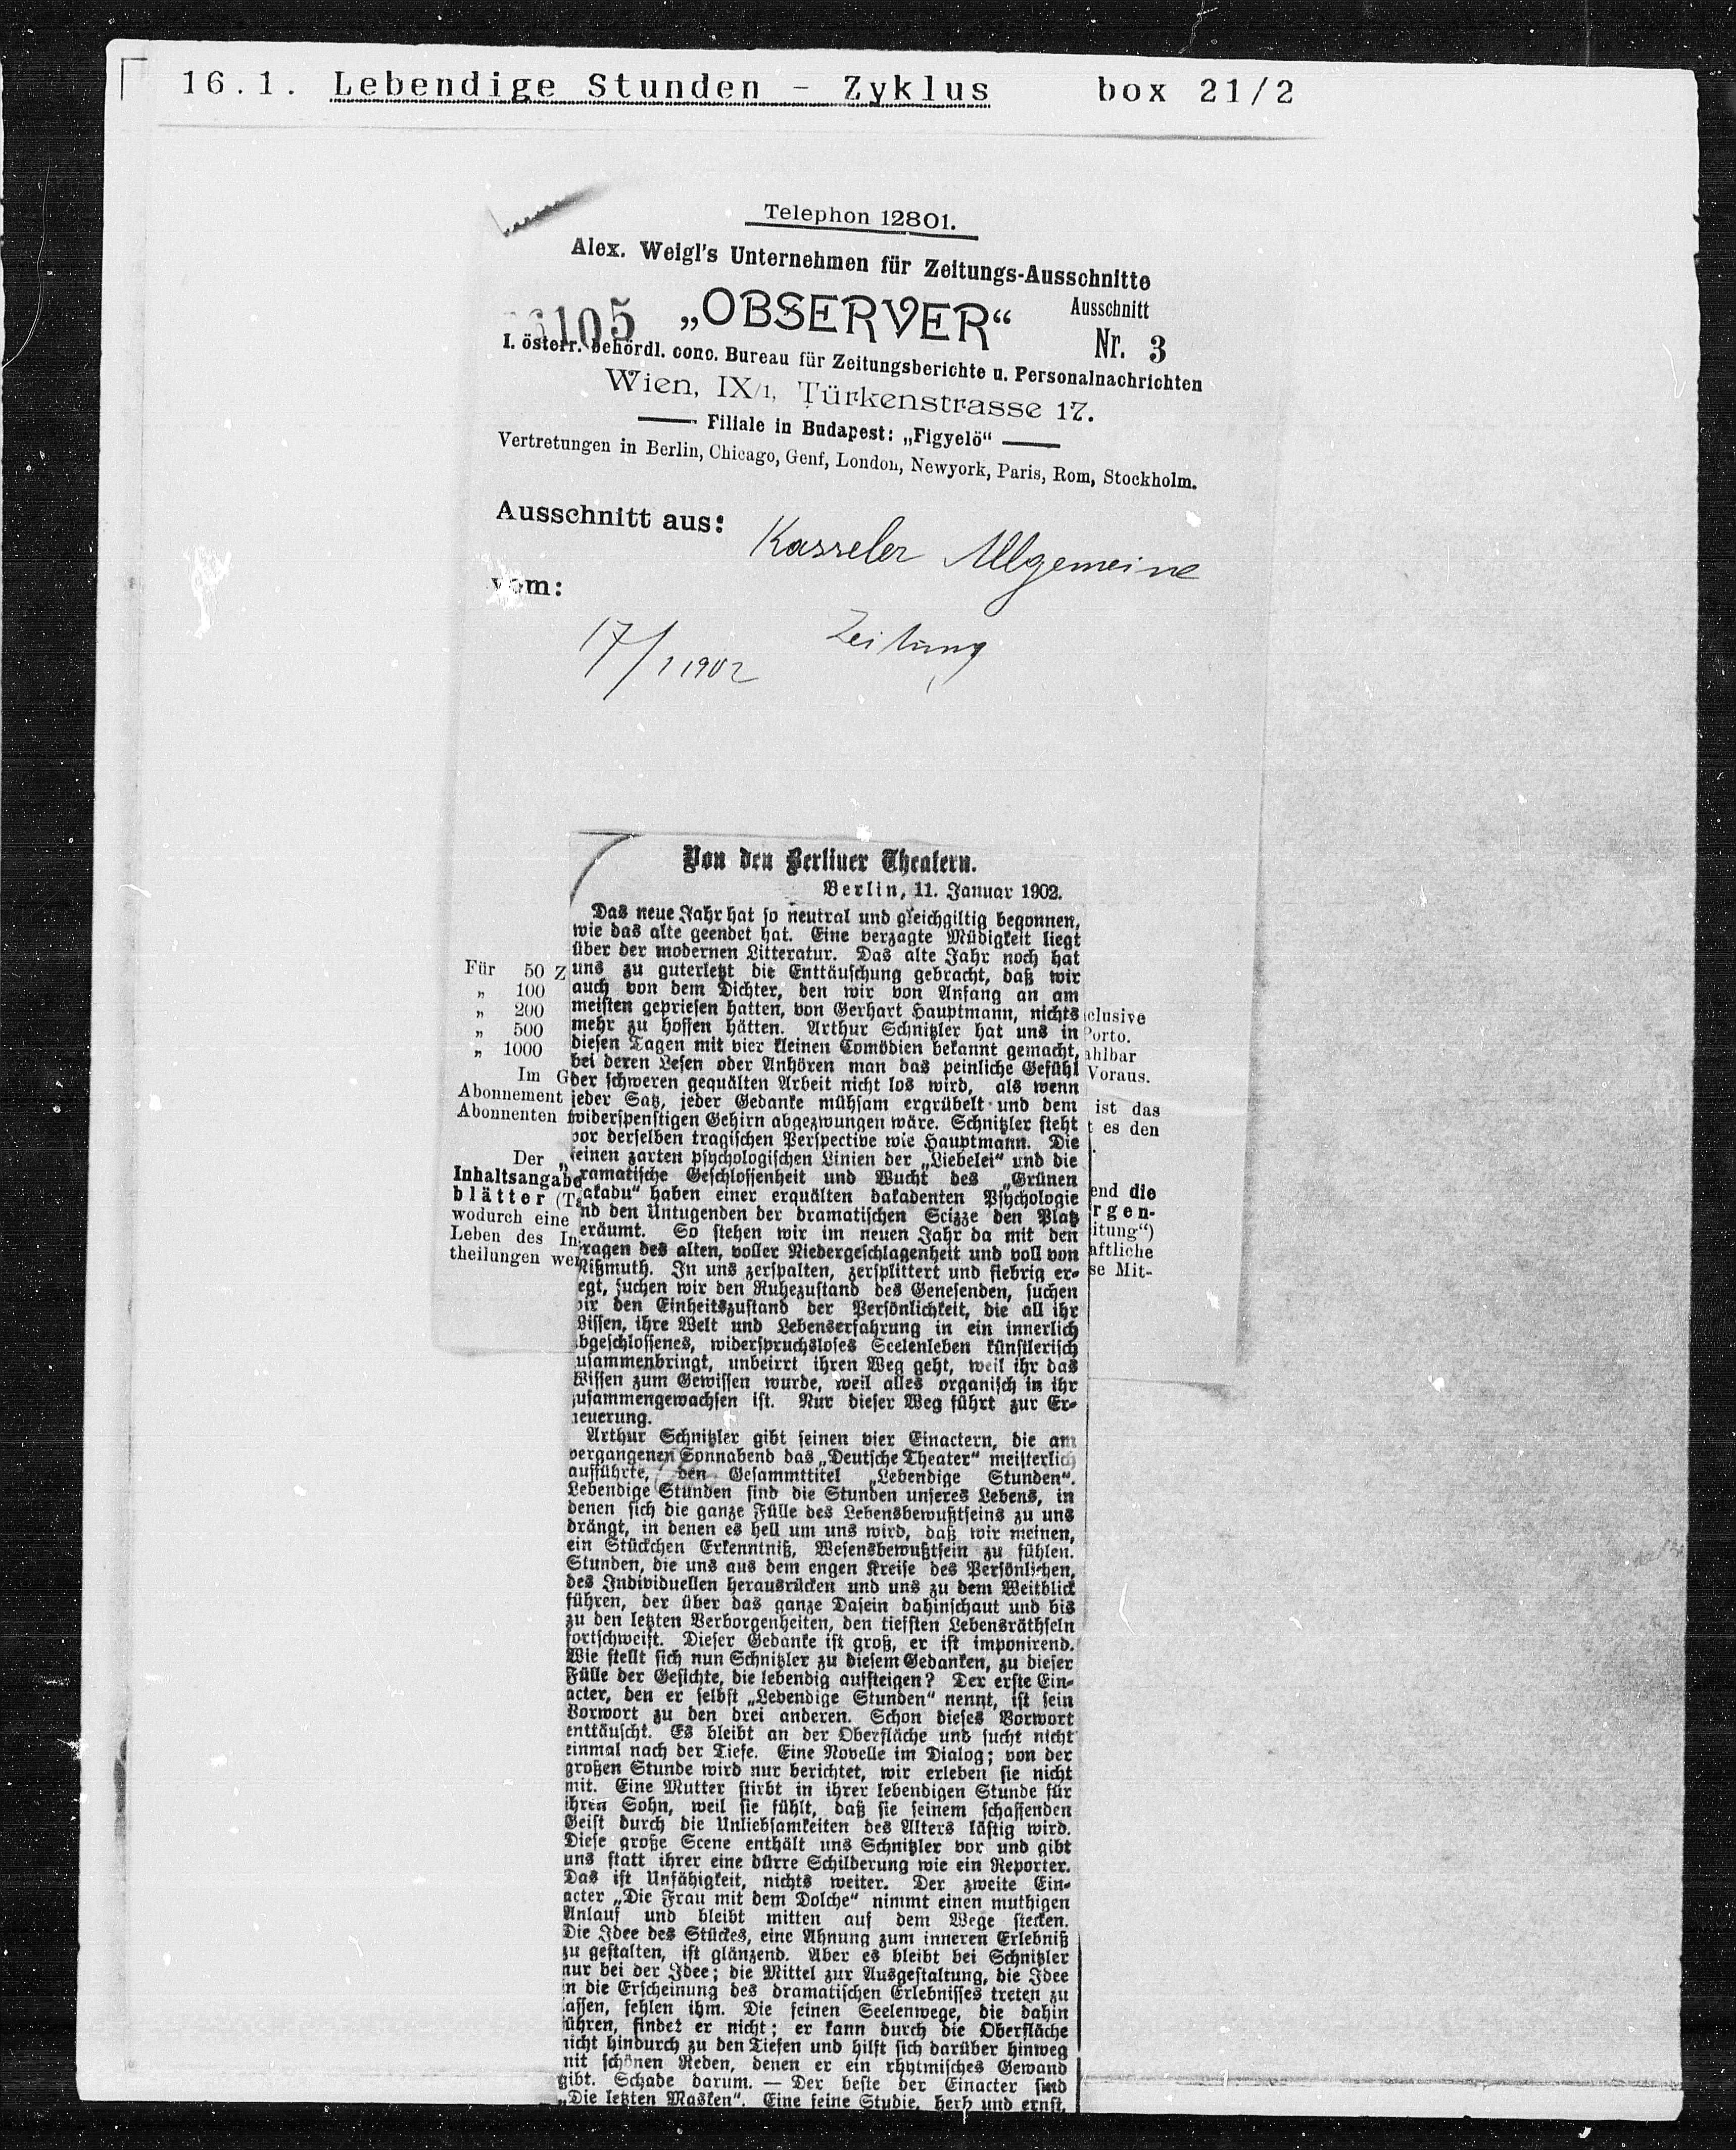 16.1. Lebendige Stunden - Zyklus box 21/2
Telephon 12801.
Alex. Weigl's Unternehmen für Zeitungs-Ausschnitte
105 „OBSERVER“ Ausschnitt
Nr. 3
I. österr. behördl. conc. Bureau für Zeitungsberichte u. Personalnachrichten
Wien, IX/1, Türkenstrasse 17.
Filiale in Budapest: „Figyelö“
Vertretungen in Berlin, Chicago, Genf, London, Newyork, Paris, Rom, Stockholm.
Ausschnitt aus: Kasseler Allgemeine
Zeitung
vom:
17/1 1902
Für 50 Z
„ 100
„ 200
„ 500
„ 1000
Im G
Abonnement
Abonnenten
Der „
Inhaltsangabe
blätter (Ta
wodurch eine
Leben des In
theilungen wer
clusive
Porto.
ahlbar
Voraus.
ist das
t es den
end die
rgen-
itung“)
aftliche
se Mit-
Von den Berliner Theatern.
Berlin, 11. Januar 1902.
Das neue Jahr hat so neutral und gleichgiltig begonnen,
wie das alte geendet hat. Eine verzagte Müdigkeit liegt
über der modernen Litteratur. Das alte Jahr noch hat
uns zu guterletzt die Enttäuschung gebracht, daß wir
auch von dem Dichter, den wir von Anfang an am
meisten gepriesen hatten, von Gerhart Hauptmann, nichts
mehr zu hoffen hätten. Arthur Schnitzler hat uns in
diesen Tagen mit vier kleinen Comödien bekannt gemacht,
bei deren Lesen oder Anhören man das peinliche Gefühl
der schweren gequälten Arbeit nicht los wird, als wenn
jeder Satz, jeder Gedanke mühsam ergrübelt und dem
widerspenstigen Gehirn abgezwungen wäre. Schnitzler steht
vor derselben tragischen Perspective wie Hauptmann. Die
feinen zarten psychologischen Linien der „Liebelei“ und die
ramatische Geschlossenheit und Wucht des „Grünen
akadu“ haben einer erquälten dakadenten Psychologie
nd den Untugenden der dramatischen Scizze den Platz
eräumt. So stehen wir im neuen Jahr da mit den
ragen des alten, voller Niedergeschlagenheit und voll von
Mißmuth. In uns zerspalten, zersplittert und fiebrig er-
egt, suchen wir den Ruhezustand des Genesenden, suchen
wir den Einheitszustand der Persönlichkeit, die all ihr
Wissen, ihre Welt und Lebenserfahrung in ein innerlich
abgeschlossenes, widerspruchsloses Seelenleben künstlerisch
zusammenbringt, unbeirrt ihren Weg geht, weil ihr das
Wissen zum Gewissen wurde, weil alles organisch in ihr
zusammengewachsen ist. Nur dieser Weg führt zur Er-
neuerung.
Arthur Schnitzler gibt seinen vier Einactern, die am
vergangenen Sonnabend das „Deutsche Theater“ meisterlich
aufführte, den Gesammttitel „Lebendige Stunden“.
Lebendige Stunden sind die Stunden unseres Lebens, in
denen sich die ganze Fülle des Lebensbewußtseins zu uns
drängt, in denen es hell um uns wird, daß wir meinen,
ein Stückchen Erkenntniß, Wesensbewußtsein zu fühlen.
Stunden, die uns aus dem engen Kreise des Persönlichen,
des Individuellen herausrücken und uns zu dem Weitblick
führen, der über das ganze Dasein dahinschaut und bis
zu den letzten Verborgenheiten, den tiefsten Lebensräthseln
fortschweift. Dieser Gedanke ist groß, er ist imponirend.
Wie stellt sich nun Schnitzler zu diesem Gedanken, zu dieser
Fülle der Gesichte, die lebendig aufsteigen? Der erste Ein-
acter, den er selbst „Lebendige Stunden“ nennt, ist sein
Vorwort zu den drei anderen. Schon dieses Vorwort
enttäuscht. Es bleibt an der Oberfläche und sucht nicht
einmal nach der Tiefe. Eine Novelle im Dialog; von der
großen Stunde wird nur berichtet, wir erleben sie nicht
mit. Eine Mutter stirbt in ihrer lebendigen Stunde für
ihren Sohn, weil sie fühlt, daß sie seinem schaffenden
Geist durch die Unliebsamkeiten des Alters lästig wird.
Diese große Scene enthält uns Schnitzler vor und gibt
uns statt ihrer eine dürre Schilderung wie ein Reporter.
Das ist Unfähigkeit, nichts weiter. Der zweite Ein-
acter „Die Frau mit dem Dolche“ nimmt einen muthigen
Anlauf und bleibt mitten auf dem Wege stecken.
Die Idee des Stückes, eine Ahnung zum inneren Erlebniß
zu gestalten, ist glänzend. Aber es bleibt bei Schnitzler
nur bei der Idee; die Mittel zur Ausgestaltung, die Idee
in die Erscheinung des dramatischen Erlebnisses treten zu
lassen, fehlen ihm. Die feinen Seelenwege, die dahin
führen, findet er nicht; er kann durch die Oberfläche
nicht hindurch zu den Tiefen und hilft sich darüber hinweg
mit schönen Reden, denen er ein rhytmisches Gewand
gibt. Schade darum. — Der beste der Einacter sind
„Die letzten Masken“. Eine feine Studie, herb und ernst,